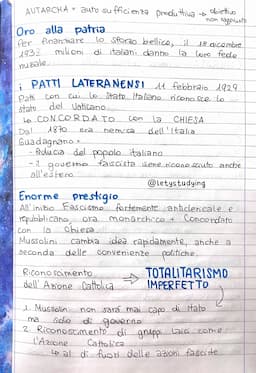 AUTARCHIA = auto sufficienza produttiva → obiettivo
non raggiunto
Oro alla patria
Per finanziare lo sforzo bellico, il 18 dicembre
1935 milioni di italiani danno la loro fede
nuziale.
i PATTI LATERANENSI 11 febbraio 1929
Patti con cui lo Stato Italiano riconosce lo
stato del Vaticano
↳ CONCORDATO con la CHIESA
Dal 1870 era nemica dell'Italia
Guadagnano:
- fiducia del popolo italiano
- il governo fascista viene riconosciuto anche
all'estero
@letystudying
Enorme prestigio
All'inizio Fascismo fortemente anticlericale e
repubblicano, ora monarchico + Concordato
con la chiesa
Mussolini cambia idea rapidamente, anche a
seconda delle convenienze politiche.
Riconoscimento
dell'Azione Cattolica → TOTALITARISMO
IMPERFETTO
1. Mussolini non sarà mai capo di stato
ma solo di governo
2. Riconoscimento di gruppi laici come
l'Azione Cattolica
↳ al di fuori delle azioni fasciste